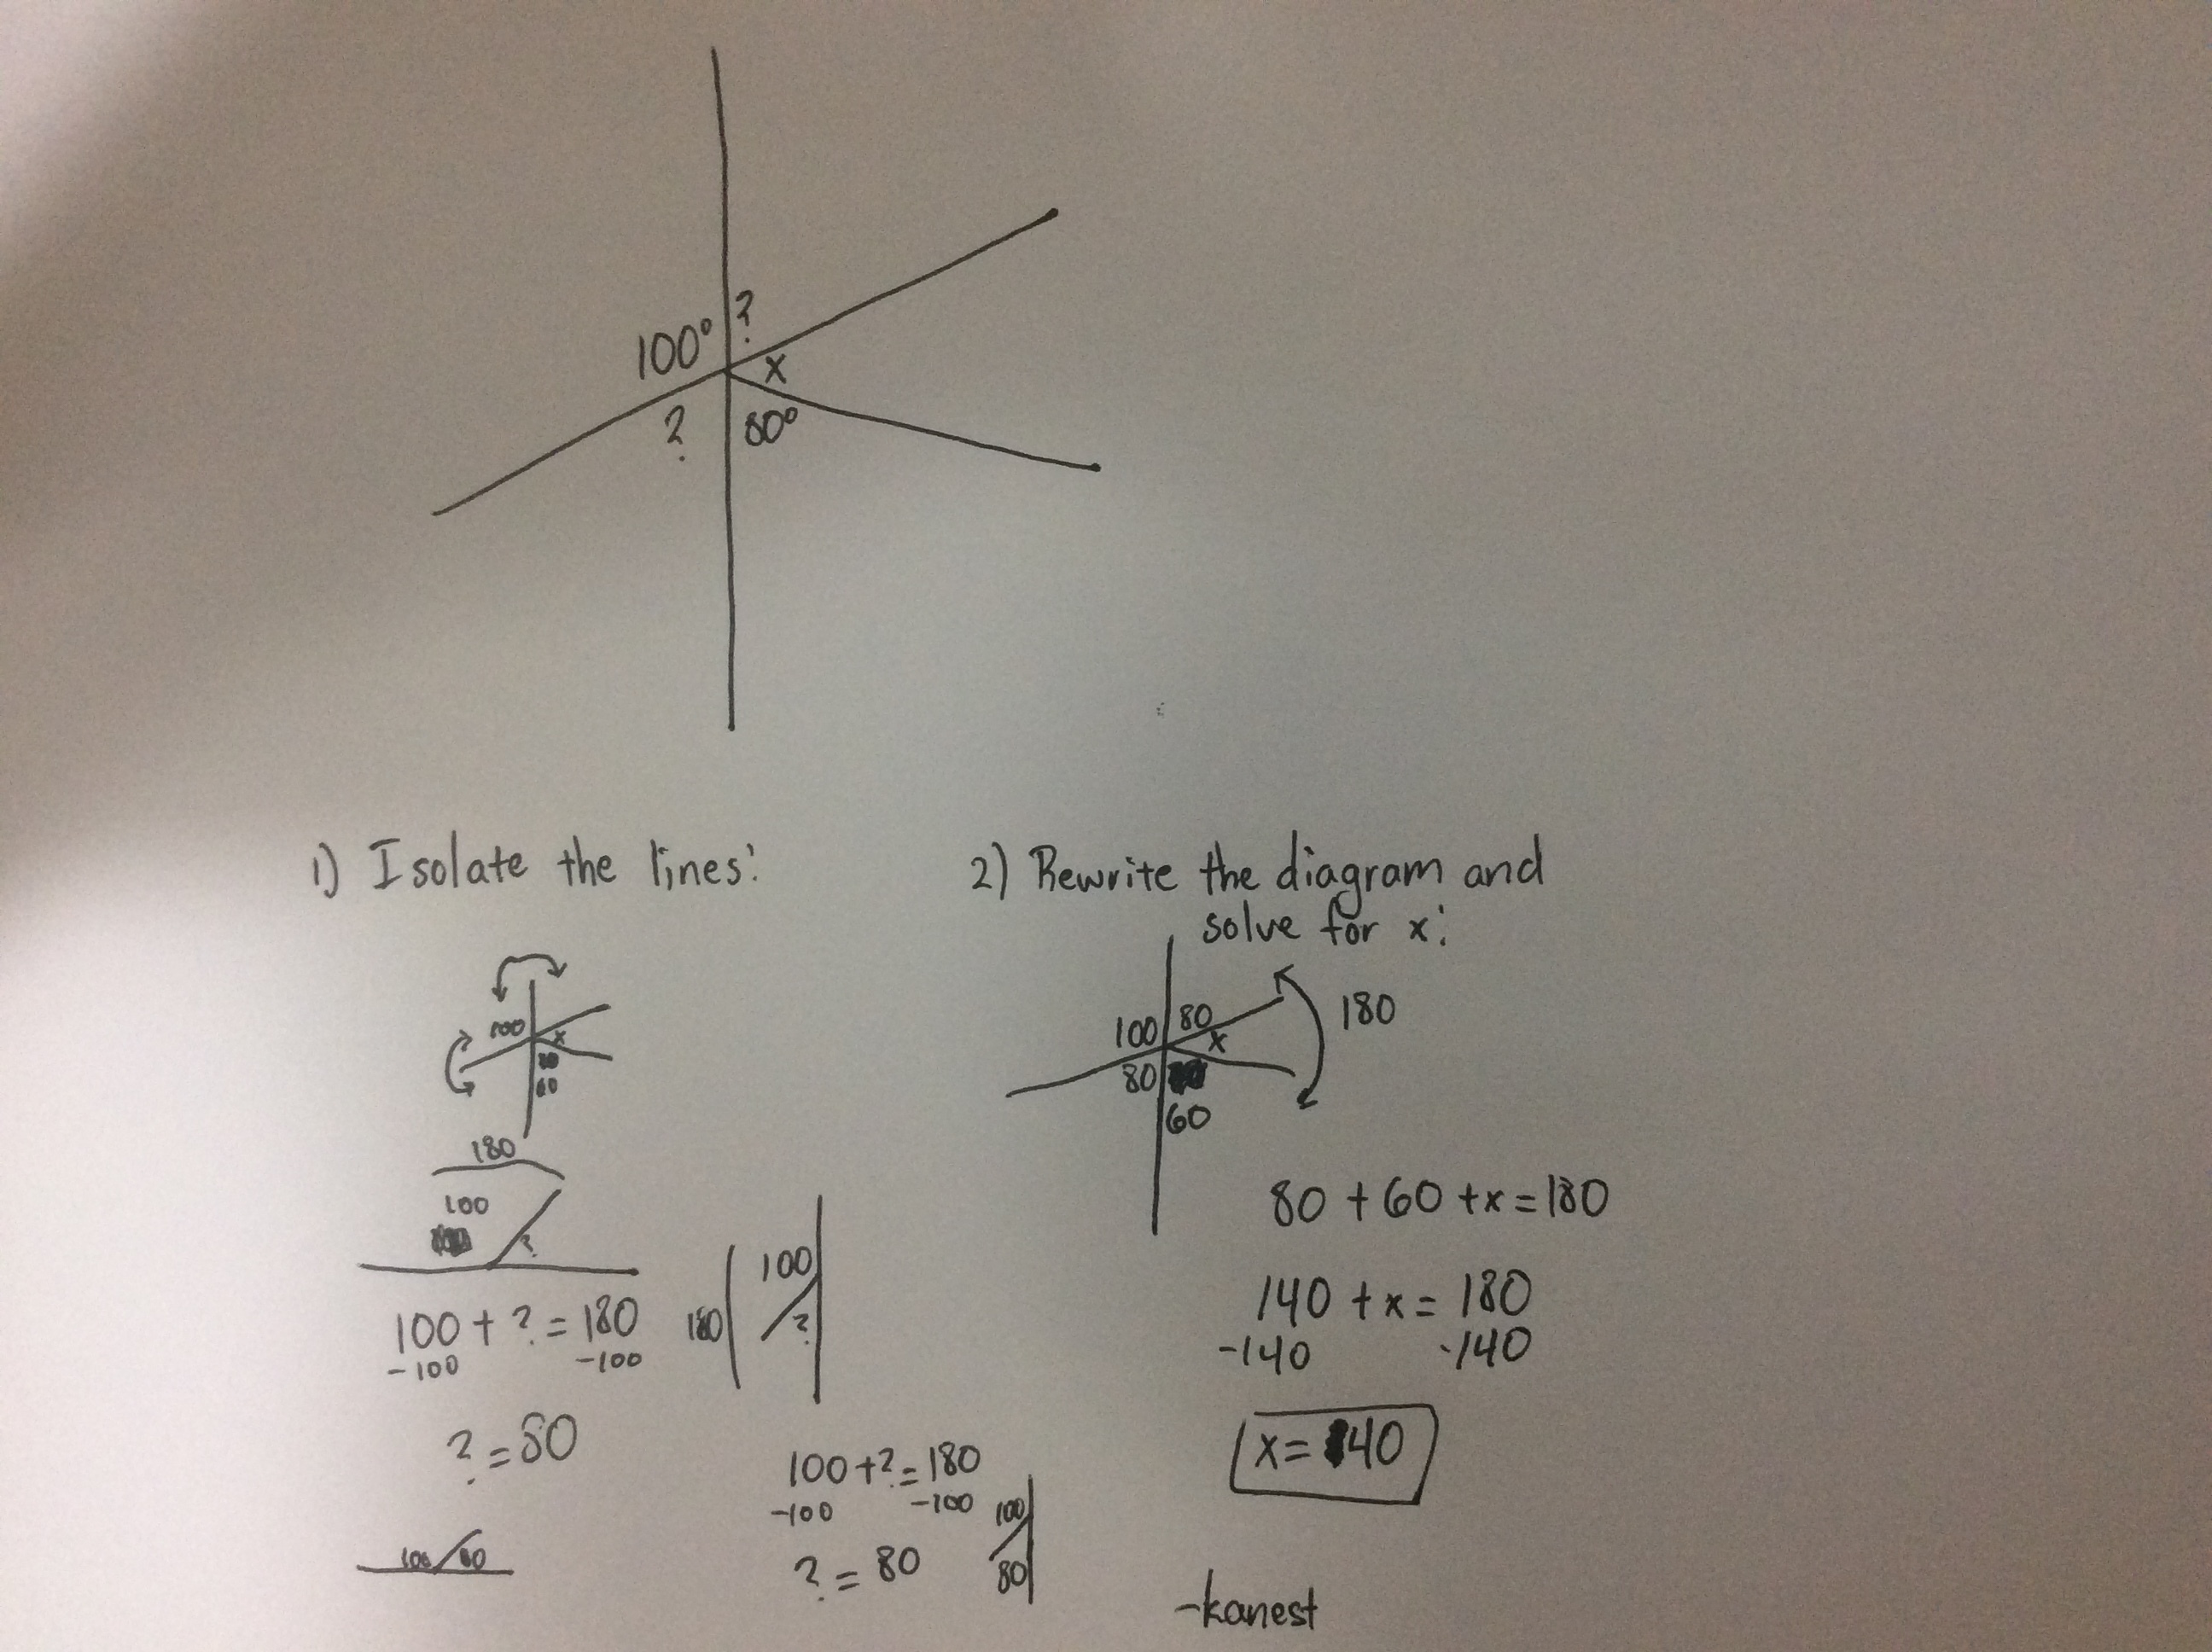 100° ?
x
? 60°
1) Isolate the lines:
100 x
60
180
100
?
100 + ? = 180
-100 -100
? = 80
100 80
180 100
?
100 + ? = 180
-100 -100
? = 80
100
80
2) Rewrite the diagram and
solve for x:
180
100 80
x
80
60
80 + 60 + x = 180
140 + x = 180
-140 -140
x = 40
-kanest